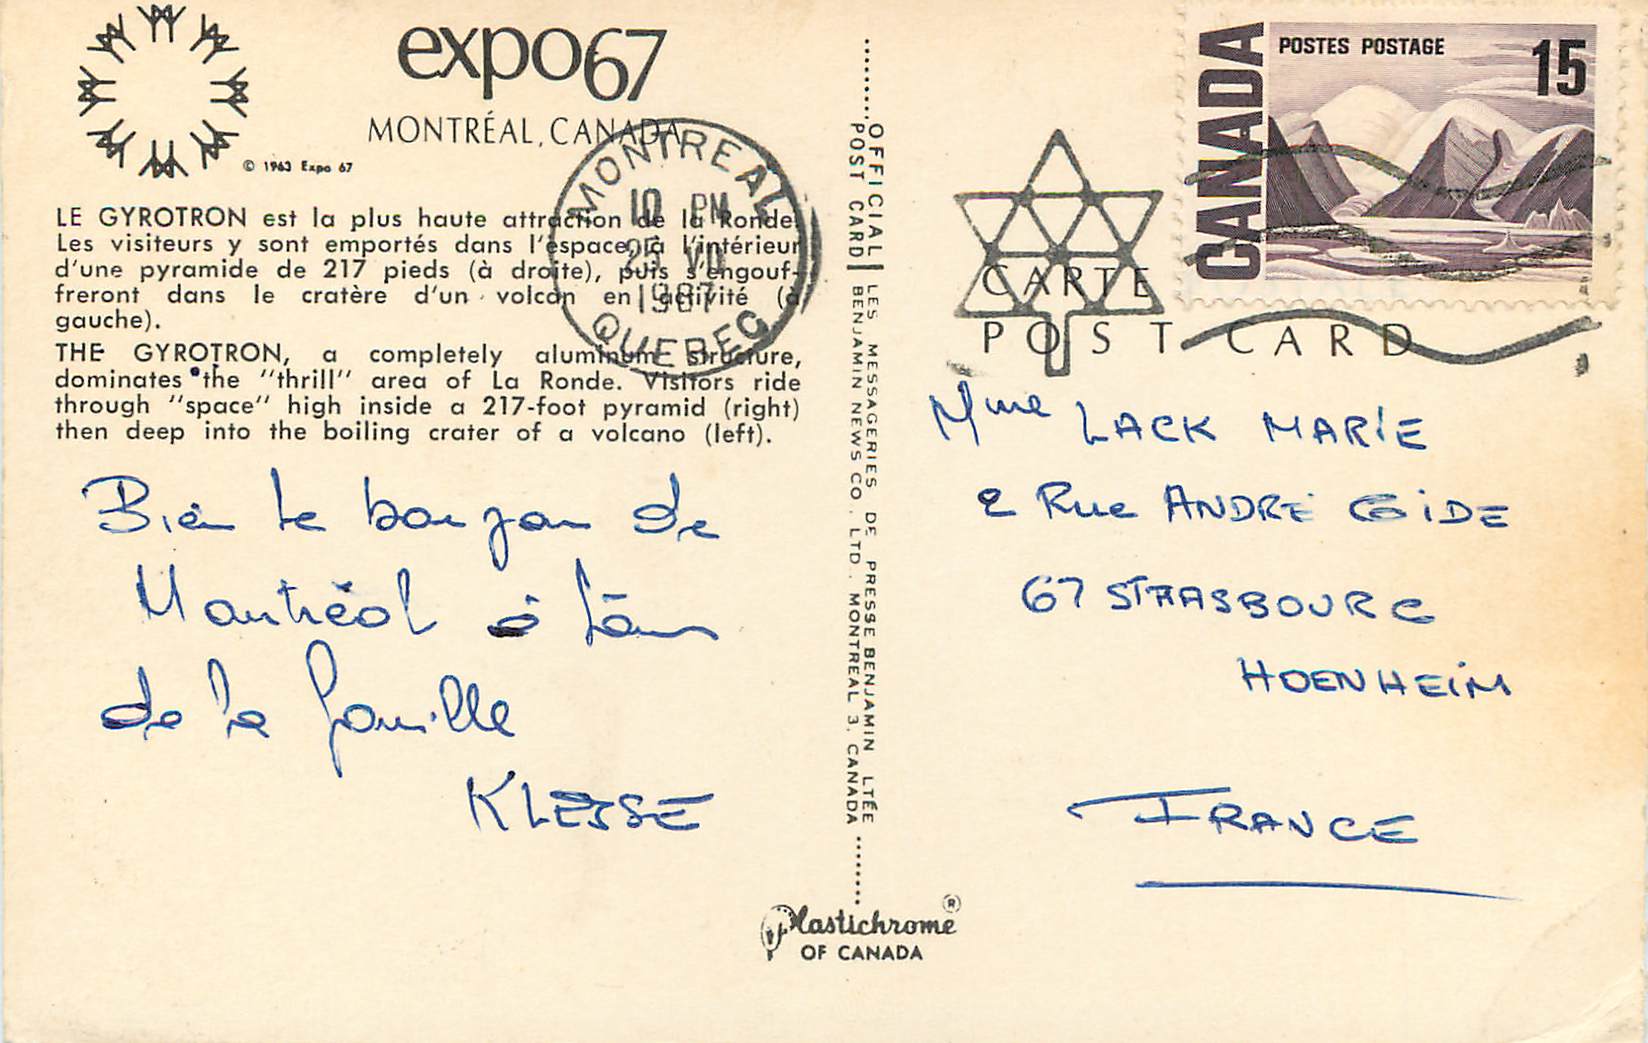 expo67
MONTRÉAL, CANADA
© 1963 Expo 67
LE GYROTRON est la plus haute attraction de la Ronde.
Les visiteurs y sont emportés dans l'espace, à l'intérieur
d'une pyramide de 217 pieds (à droite), puis s'engouf-
freront dans le cratère d'un volcan en activité (à
gauche).
THE GYROTRON, a completely aluminum structure,
dominates the "thrill" area of La Ronde. Visitors ride
through "space" high inside a 217-foot pyramid (right)
then deep into the boiling crater of a volcano (left).
MONTREAL
10 PM
25 VII
1967
QUEBEC
Bien le bonjour de
Montréal à tous
de la famille
KLEISSE
OFFICIAL LES MESSAGERIES DE PRESSE BENJAMIN LTÉE
POST CARD BENJAMIN NEWS CO. LTD. MONTREAL 3, CANADA
Plastichrome ®
OF CANADA
CANADA
POSTES POSTAGE
15
CARTE
POST CARD
Mme LACK MARIE
2 Rue ANDRE GIDE
67 STRASBOURG
HOENHEIM
FRANCE